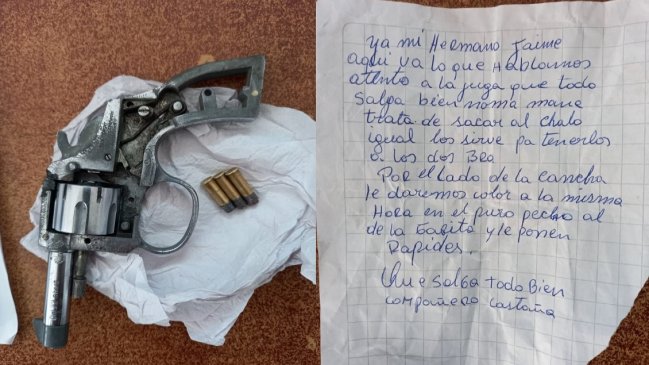 Ya mi Hermano Jaime
aqui va lo que Hablamos
atento a la juga que todo
salga bien noma mania
trata de sacar al chalo
igual los sirve pa tenerlos
a los dos Bea
Por el lado de la cancha
le daremos color a la misma
Hora en el puro pecho al
de la Garita y le ponen
Rapides.
Que salga todo Bien
compañero castaña